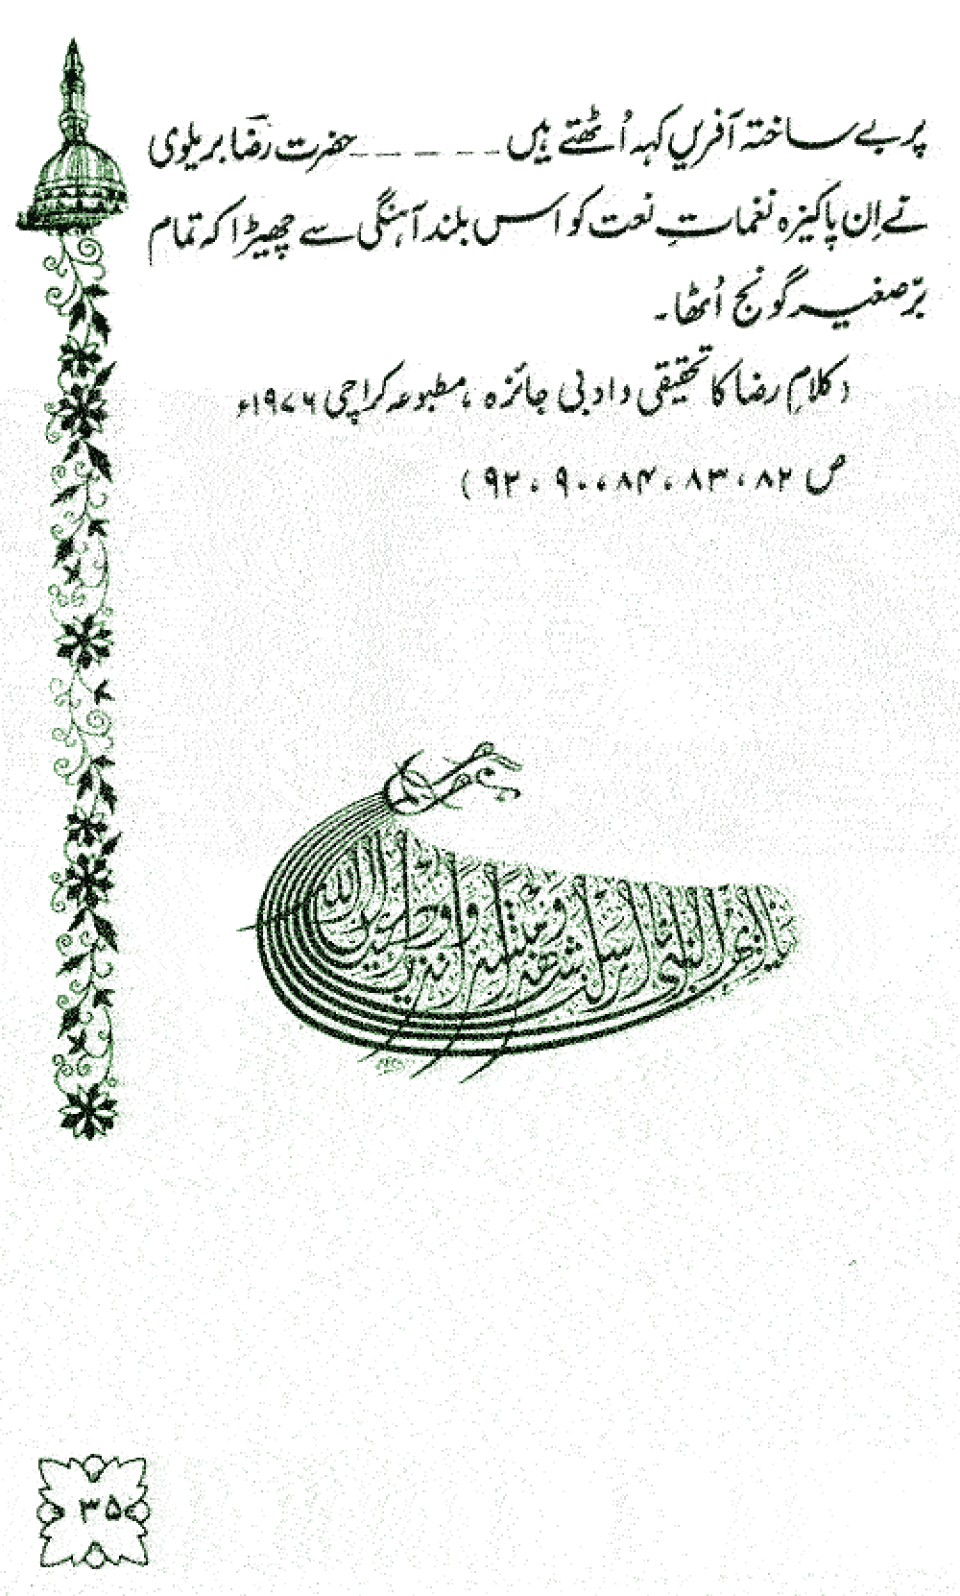 پر بے ساختہ آفریں کہہ اُٹھتے ہیں ـ ـ ـ ـ ـ حضرت رضؔا بریلوی
نے اِن پاکیزہ نغماتِ نعت کو اس بلند آہنگی سے چھیڑا کہ تمام
برّصغیر گونج اُٹھا۔
(کلامِ رضا کا تحقیقی و ادبی جائزہ، مطبوعہ کراچی ۱۹۷۶ء
ص ۸۲، ۸۳، ۸۴، ۹۰، ۹۲)
یا أیها النبی إنا أرسلناك شاهدا ومبشرا ونذیرا وداعیا إلی الله
۳۵